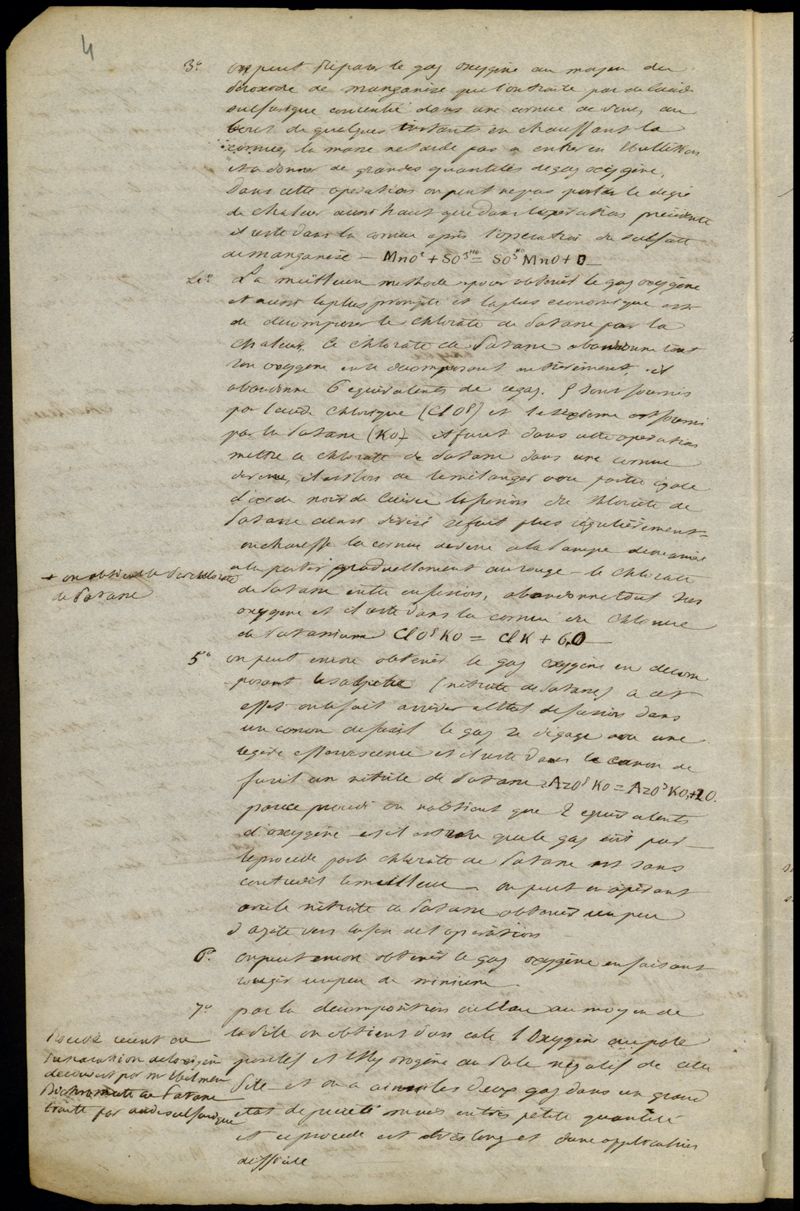 4
3° on peut préparer le gaz oxygène au moyen du
peroxide de manganèse que l'on traite par de l'acide
sulfurique concentré dans une cornue de verre, au
bout de quelques instants en chauffant la
cornue, la masse ne tarde pas a entrer en ébullition
et a donner de grandes quantités de gaz oxygène.
Dans cette operation on peut ne pas porter le degré
de chaleur aussi haut que dans l'operation précédente
il reste dans la cornue après l'operation du sulfate
de manganèse — MnO² + SO³ = SO³ MnO + O
4° La meilleure methode pour obtenir le gaz oxygène
et aussi la plus prompte et la plus economique est
de décomposer le chlorate de potasse par la
chaleur, le chlorate de potasse abandonne tout
son oxygène en se décomposant entièrement, il
abandonne 6 equivalents de ce gaz. 5 sont fournis
par l'acide chlorique (ClO⁵) et le sixième est fourni
par la potasse (KO) il faut dans cette operation
mettre le chlorate de potasse dans une cornue
de verre, il est bon de le mélanger avec partie égale
d'oxide noir de cuivre la fusion du chlorate de
potasse ainsi divisé se fait plus régulièrement —
on chauffe la cornue de verre a la lampe
a la porter graduellement au rouge — le chlorate
de potasse entre en fusion, abandonne tout son
oxygène et il reste dans la cornue du chlorure
de potassium ClO⁵KO = ClK + 6O
+ on obtient le perchlorate
de potasse
5° on peut encore obtenir le gaz oxygène en décom
-posant le salpêtre (nitrate de potasse) a cet
effet on le fait arriver a l'état de fusion dans
un canon de fusil le gaz se dégage avec une
legère effervescence et il reste dans le canon de
fusil un nitrite de potasse AzO⁵KO = AzO³KO + 2O.
par ce procédé on n'obtient que 2 equivalents
d'oxygène — et il est rare que le gaz soit pur —
le procédé par le chlorate de potasse est sans
contredit le meilleur — on peut en opérant
avec le nitrate de potasse obtenir un peu
d'azote vers la fin de l'opération
6° on peut encore obtenir le gaz oxygène en faisant
rougir un peu de minium
7° par la décomposition de l'eau au moyen de
la pile on obtient d'un coté l'Oxygène au pole
positif et l'hydrogène au pole négatif de cette
pile — et on a ainsi les deux gaz dans un grand
état de pureté mais en très petite quantité
et ce procédé est très long et d'une application
difficile
Procédé récent de
préparation de l'oxigène
découvert par mr
Bichromate de potasse
traité par acide sulfurique